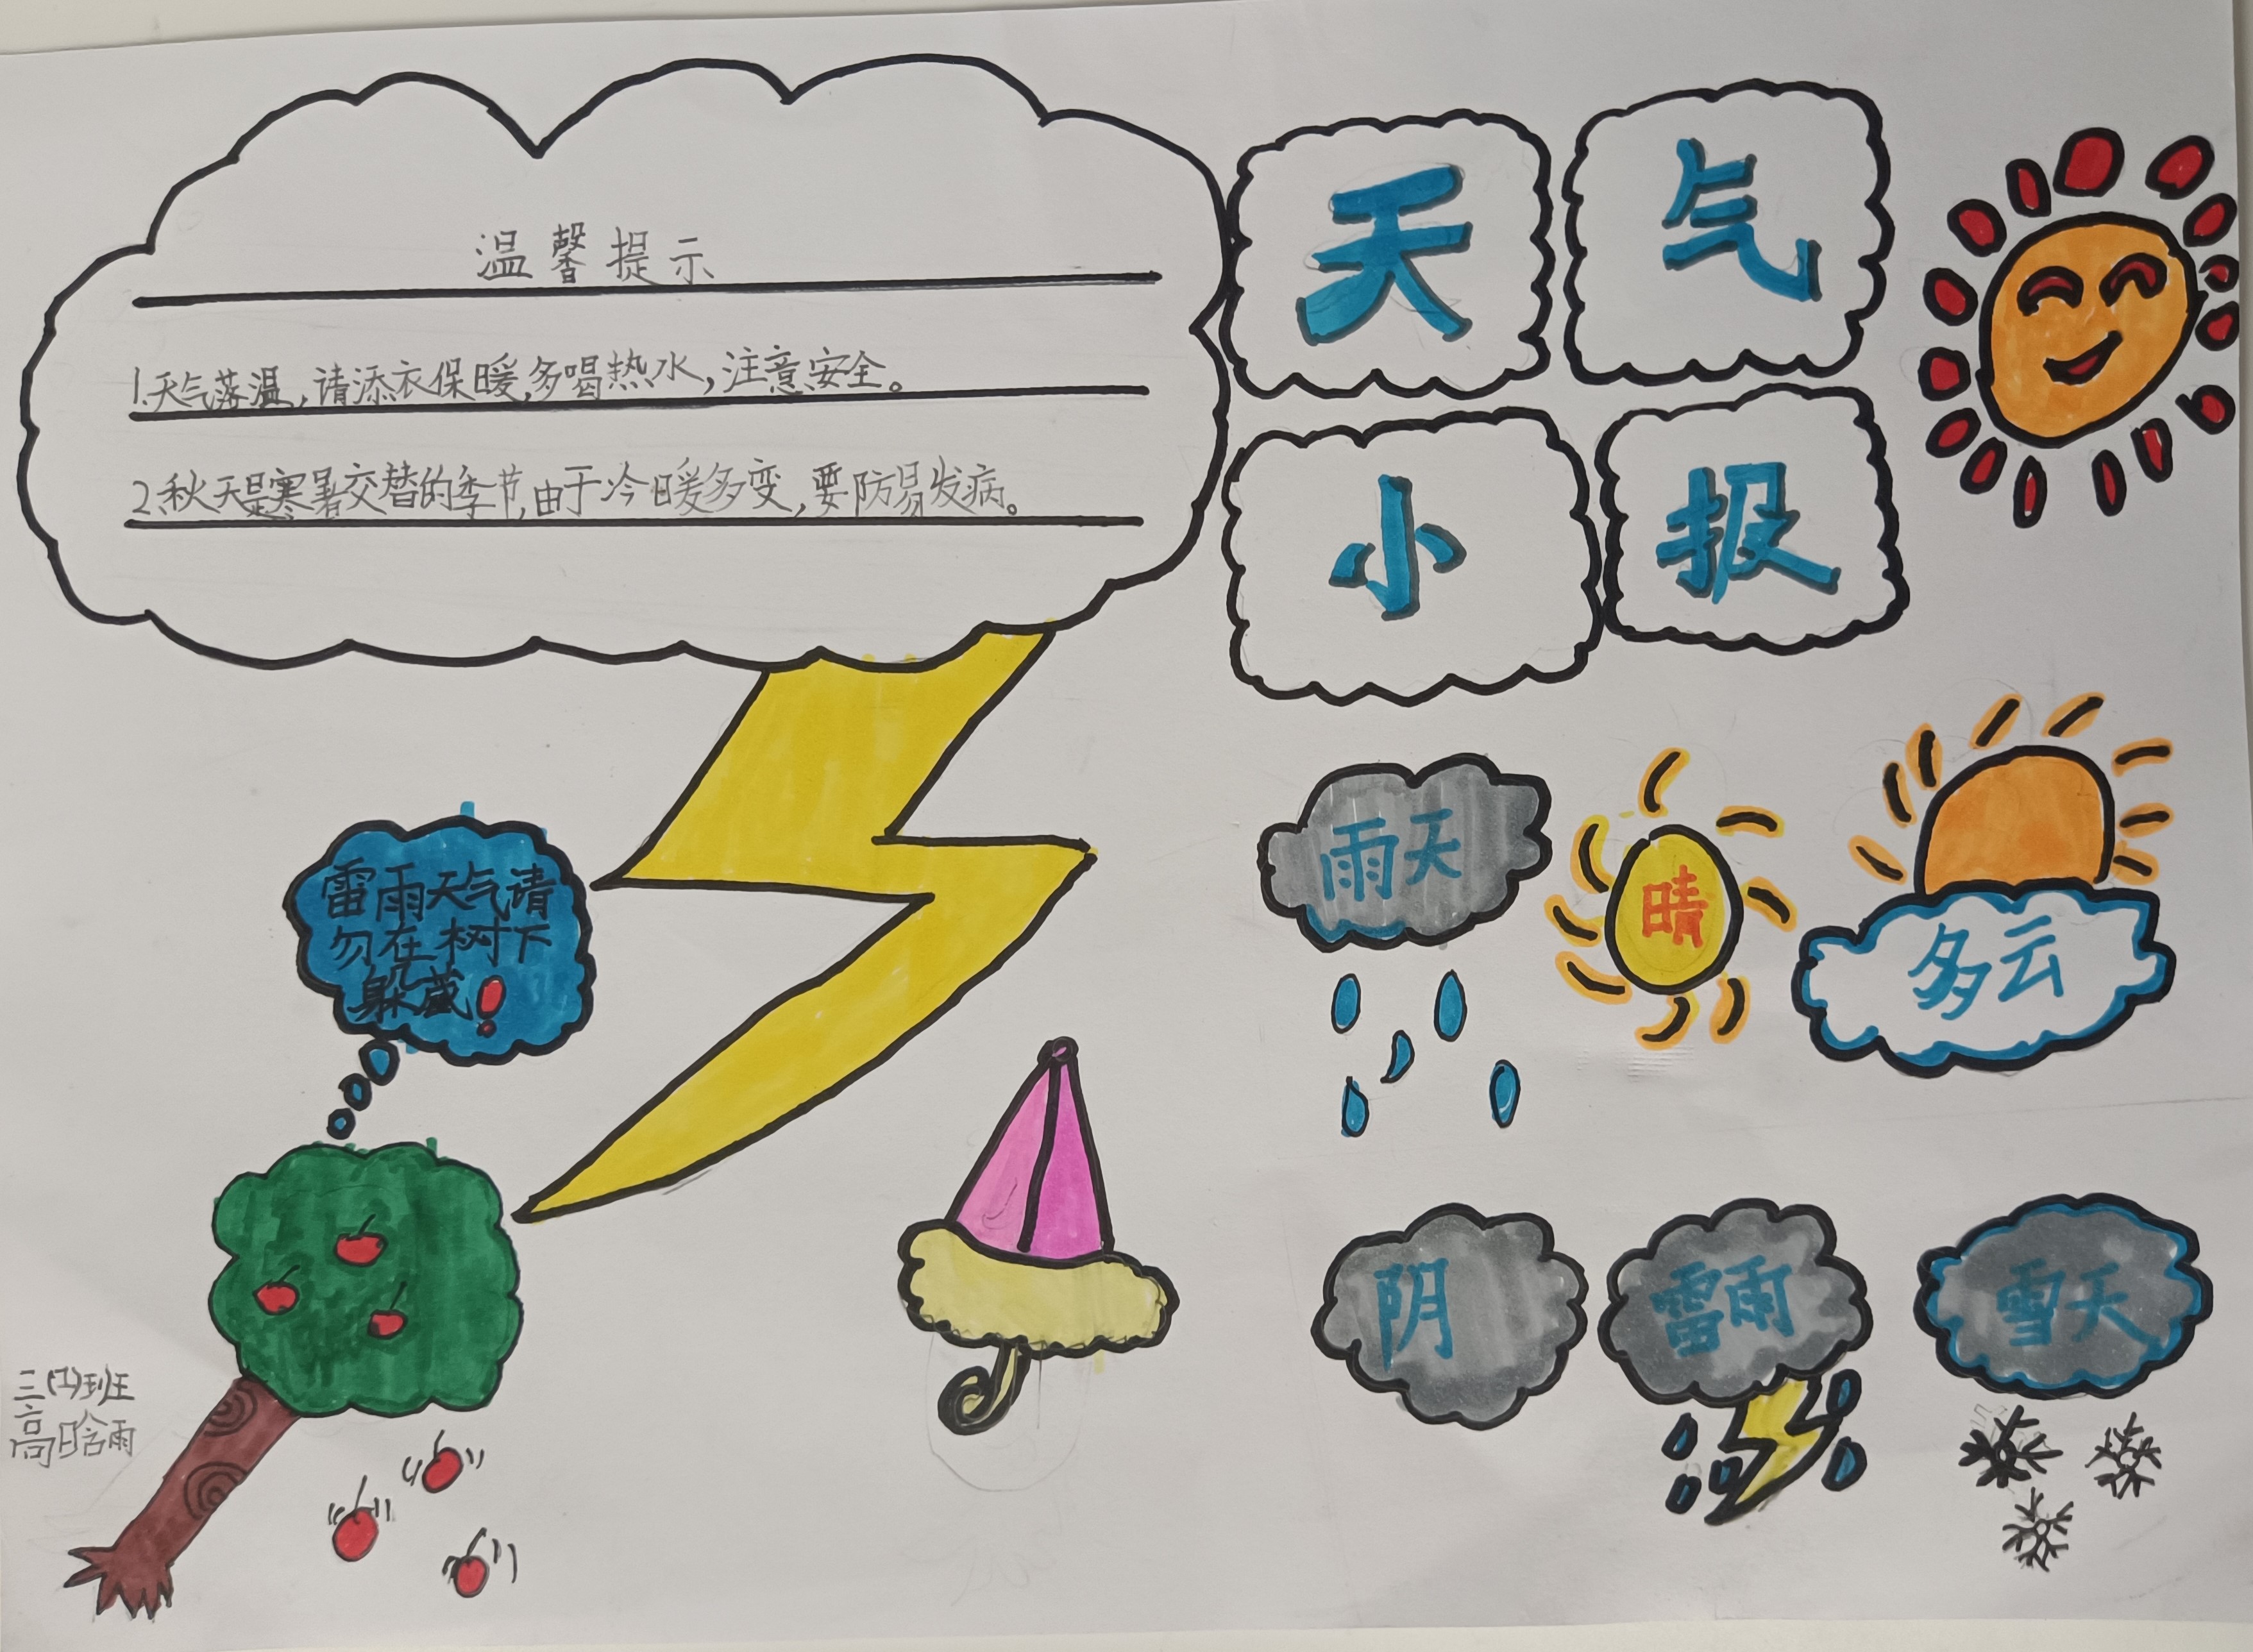 温馨提示
1.天气落温,请添衣保暖,多喝热水,注意安全。
2.秋天是寒暑交替的季节,由于冷暖多变,要防易发病。
天气
小报
雷雨天气请
勿在树下
躲藏!
雨天
晴
多云
阴
雷雨
雪天
三(1)班
高晗雨